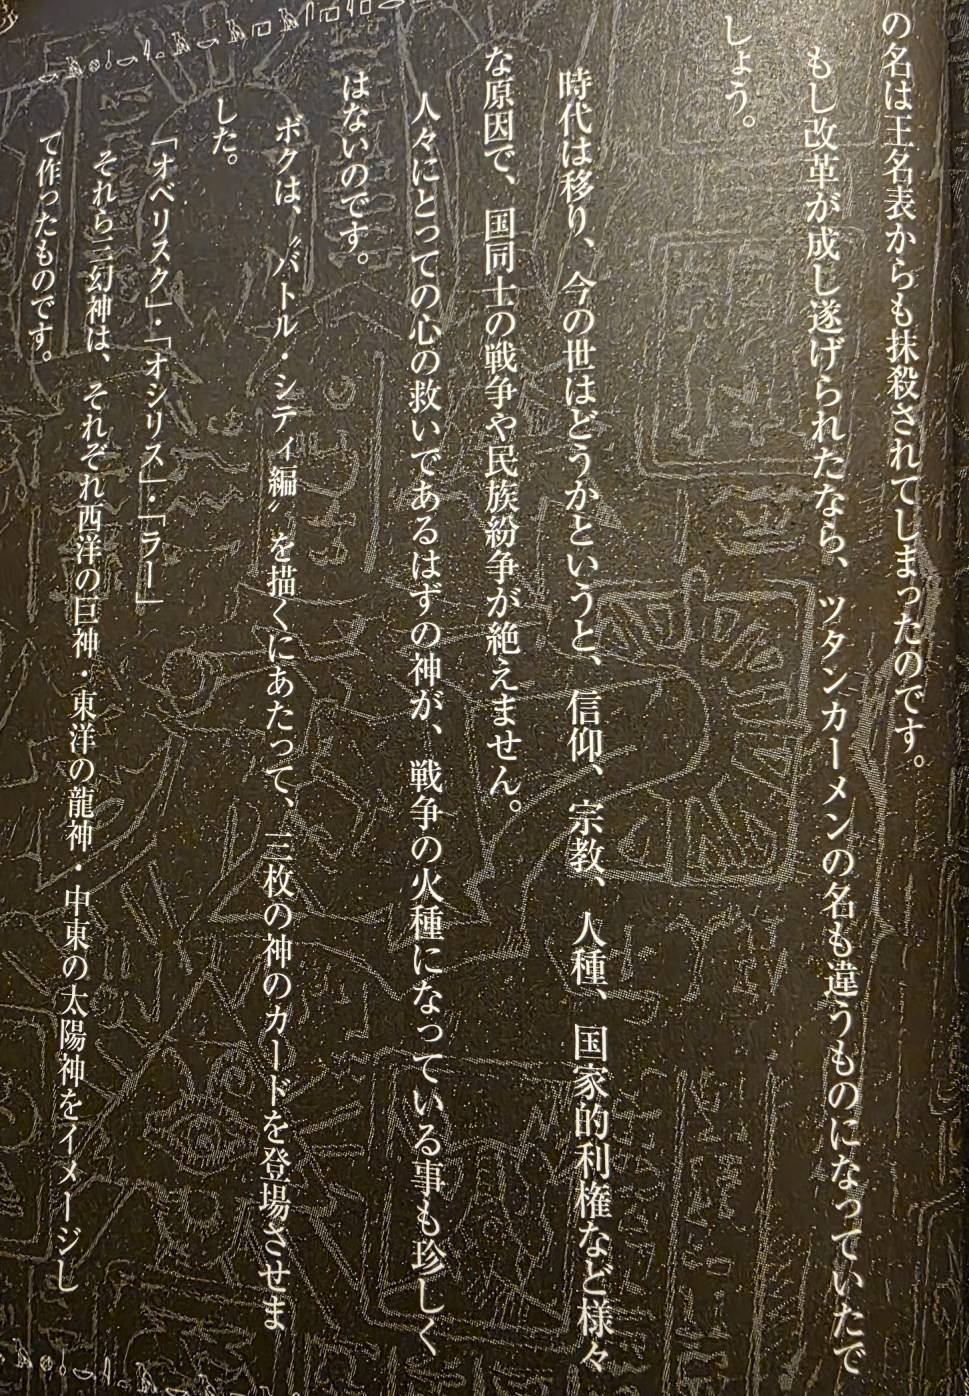 の名は王名表からも抹殺されてしまったのです。
もし改革が成し遂げられたなら、ツタンカーメンの名も違うものになっていたで
しょう。
時代は移り、今の世はどうかというと、信仰、宗教、人種、国家的利権など様々
な原因で、国同士の戦争や民族紛争が絶えません。
人々にとっての心の救いであるはずの神が、戦争の火種になっている事も珍しく
はないのです。
ボクは、〝バトル・シティ編〟を描くにあたって、三枚の神のカードを登場させま
した。
「オベリスク」・「オシリス」・「ラー」
それら三幻神は、それぞれ西洋の巨神・東洋の龍神・中東の太陽神をイメージし
て作ったものです。